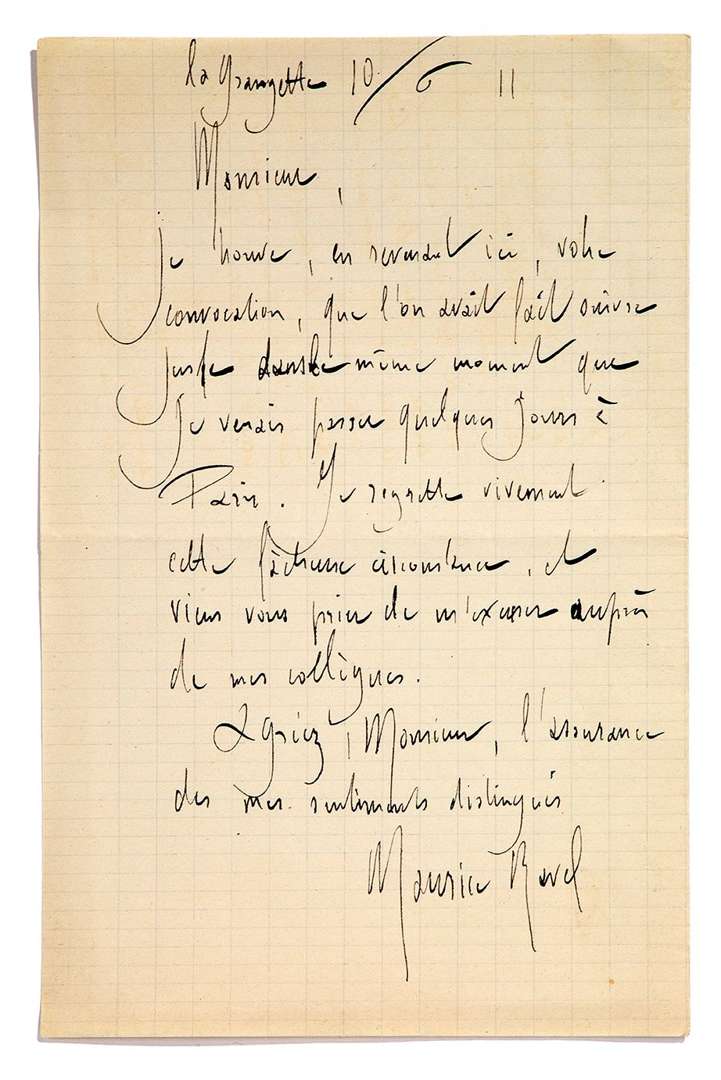 la Grangette 10/6 11
Monsieur,
Je trouve, en revenant ici, votre
convocation, que l'on avait fait suivre
juste dans le même moment que
je venais passer quelques jours à
Paris. Je regrette vivement
cette fâcheuse circonstance, et
viens vous prier de m'excuser auprès
de mes collègues.
Agréez, Monsieur, l'assurance
des mes sentiments distingués
Maurice Ravel